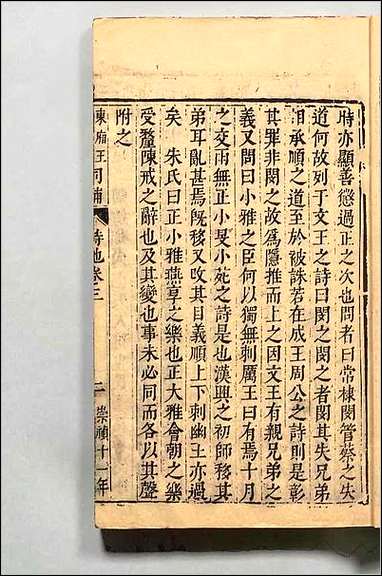 時亦顯善懲過正之次也問者曰常棣閔管蔡之失
道何故列于文王之詩曰閔之閔之者閔其失兄弟
相承順之道至於被誅若在成王周公之詩則是彰
其罪非閔之故為隱推而上之因文王有親兄弟之
義又問曰小雅之臣何以獨無刺厲王曰有焉十月
之交雨無正小旻小宛之詩是也漢興之初師移其
弟耳亂甚焉既移又攺其目義順上下刺幽王亦過
矣　朱氏曰正小雅燕享之樂也正大雅會朝之樂
受釐陳戒之辭也及其變也事未必同而各以其聲
附之
東廂王司補　詩地卷三　二　崇禎十一年